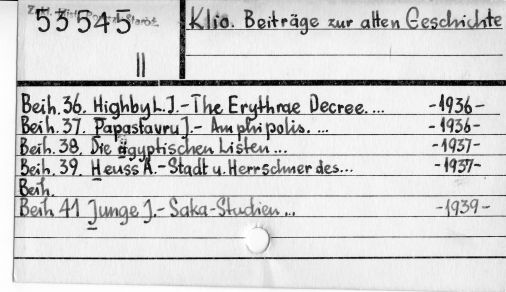 53545
II
Klio. Beiträge zur alten Geschichte
Beih. 36. Highby L. J. - The Erythrae Decree. ... -1936-
Beih. 37. Papastavru J. - Amphipolis. ... -1936-
Beih. 38. Die ägyptischen Listen ... -1937-
Beih. 39. Heuss A. - Stadt u. Herrschner des... -1937-
Beih.
Beih 41 Junge J. - Saka-Studien ... -1939-